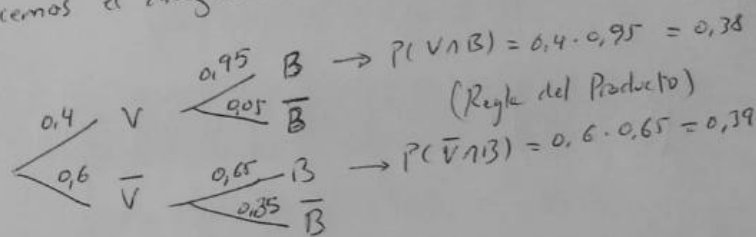 0,95 B → P(V∩B) = 0,4·0,95 = 0,38
0,4 V 0,05 B̅
(Regla del Producto)
0,6 V̅ 0,65 B → P(V̅∩B) = 0,6·0,65 = 0,39
0,35 B̅